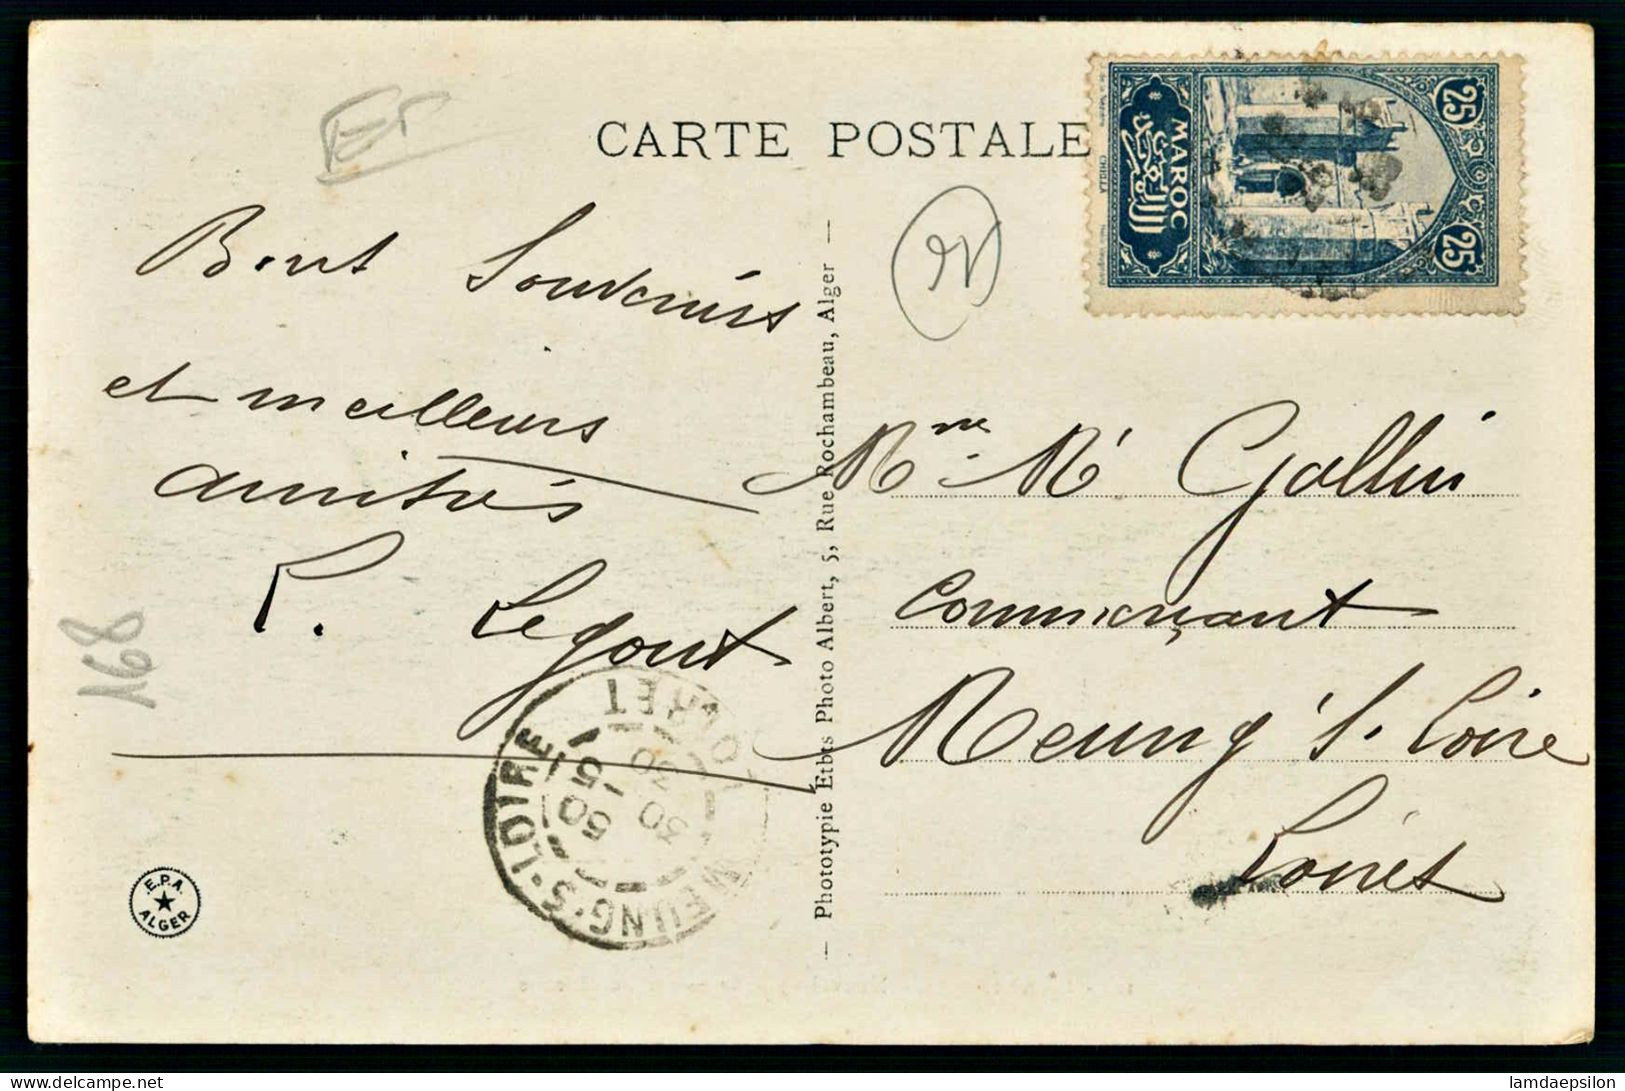 CARTE POSTALE
25 25
MAROC
CHELLA
Bons Souvenirs
et meilleurs
amitiés
P. Legout
168
Mme M Gallin
Commerçant
Meung s. Loire
Loiret
— Phototypie Etbts Photo Albert, 5, Rue Rochambeau, Alger —
MEUNG-S-LOIRE
LOIRET
E.P.A.
ALGER
lamdaepsilon